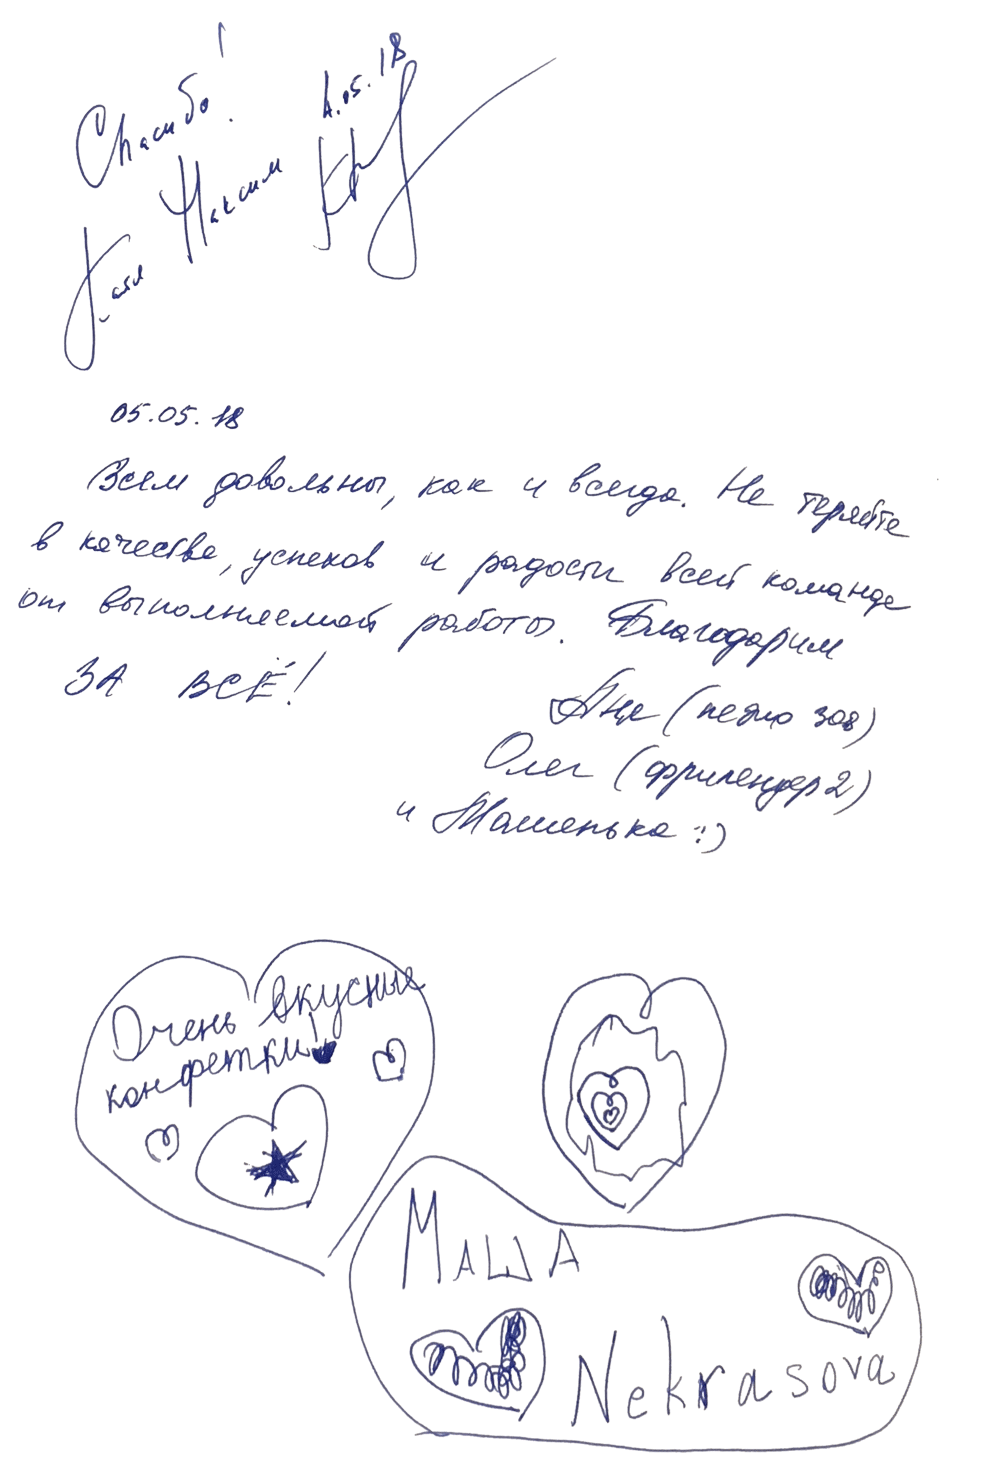 Спасибо!
Катя Максим 4.05.18
05.05.18
Всем довольны, как и всегда. Не теряйте
в качестве, успехов и радости всей команде
от выполняемой работы. Благодарим
ЗА ВСЁ!
Аня (
Олег (фрилендер 2)
и Машенька :)
Очень вкусные
конфетки!
МАША
Nekrasova